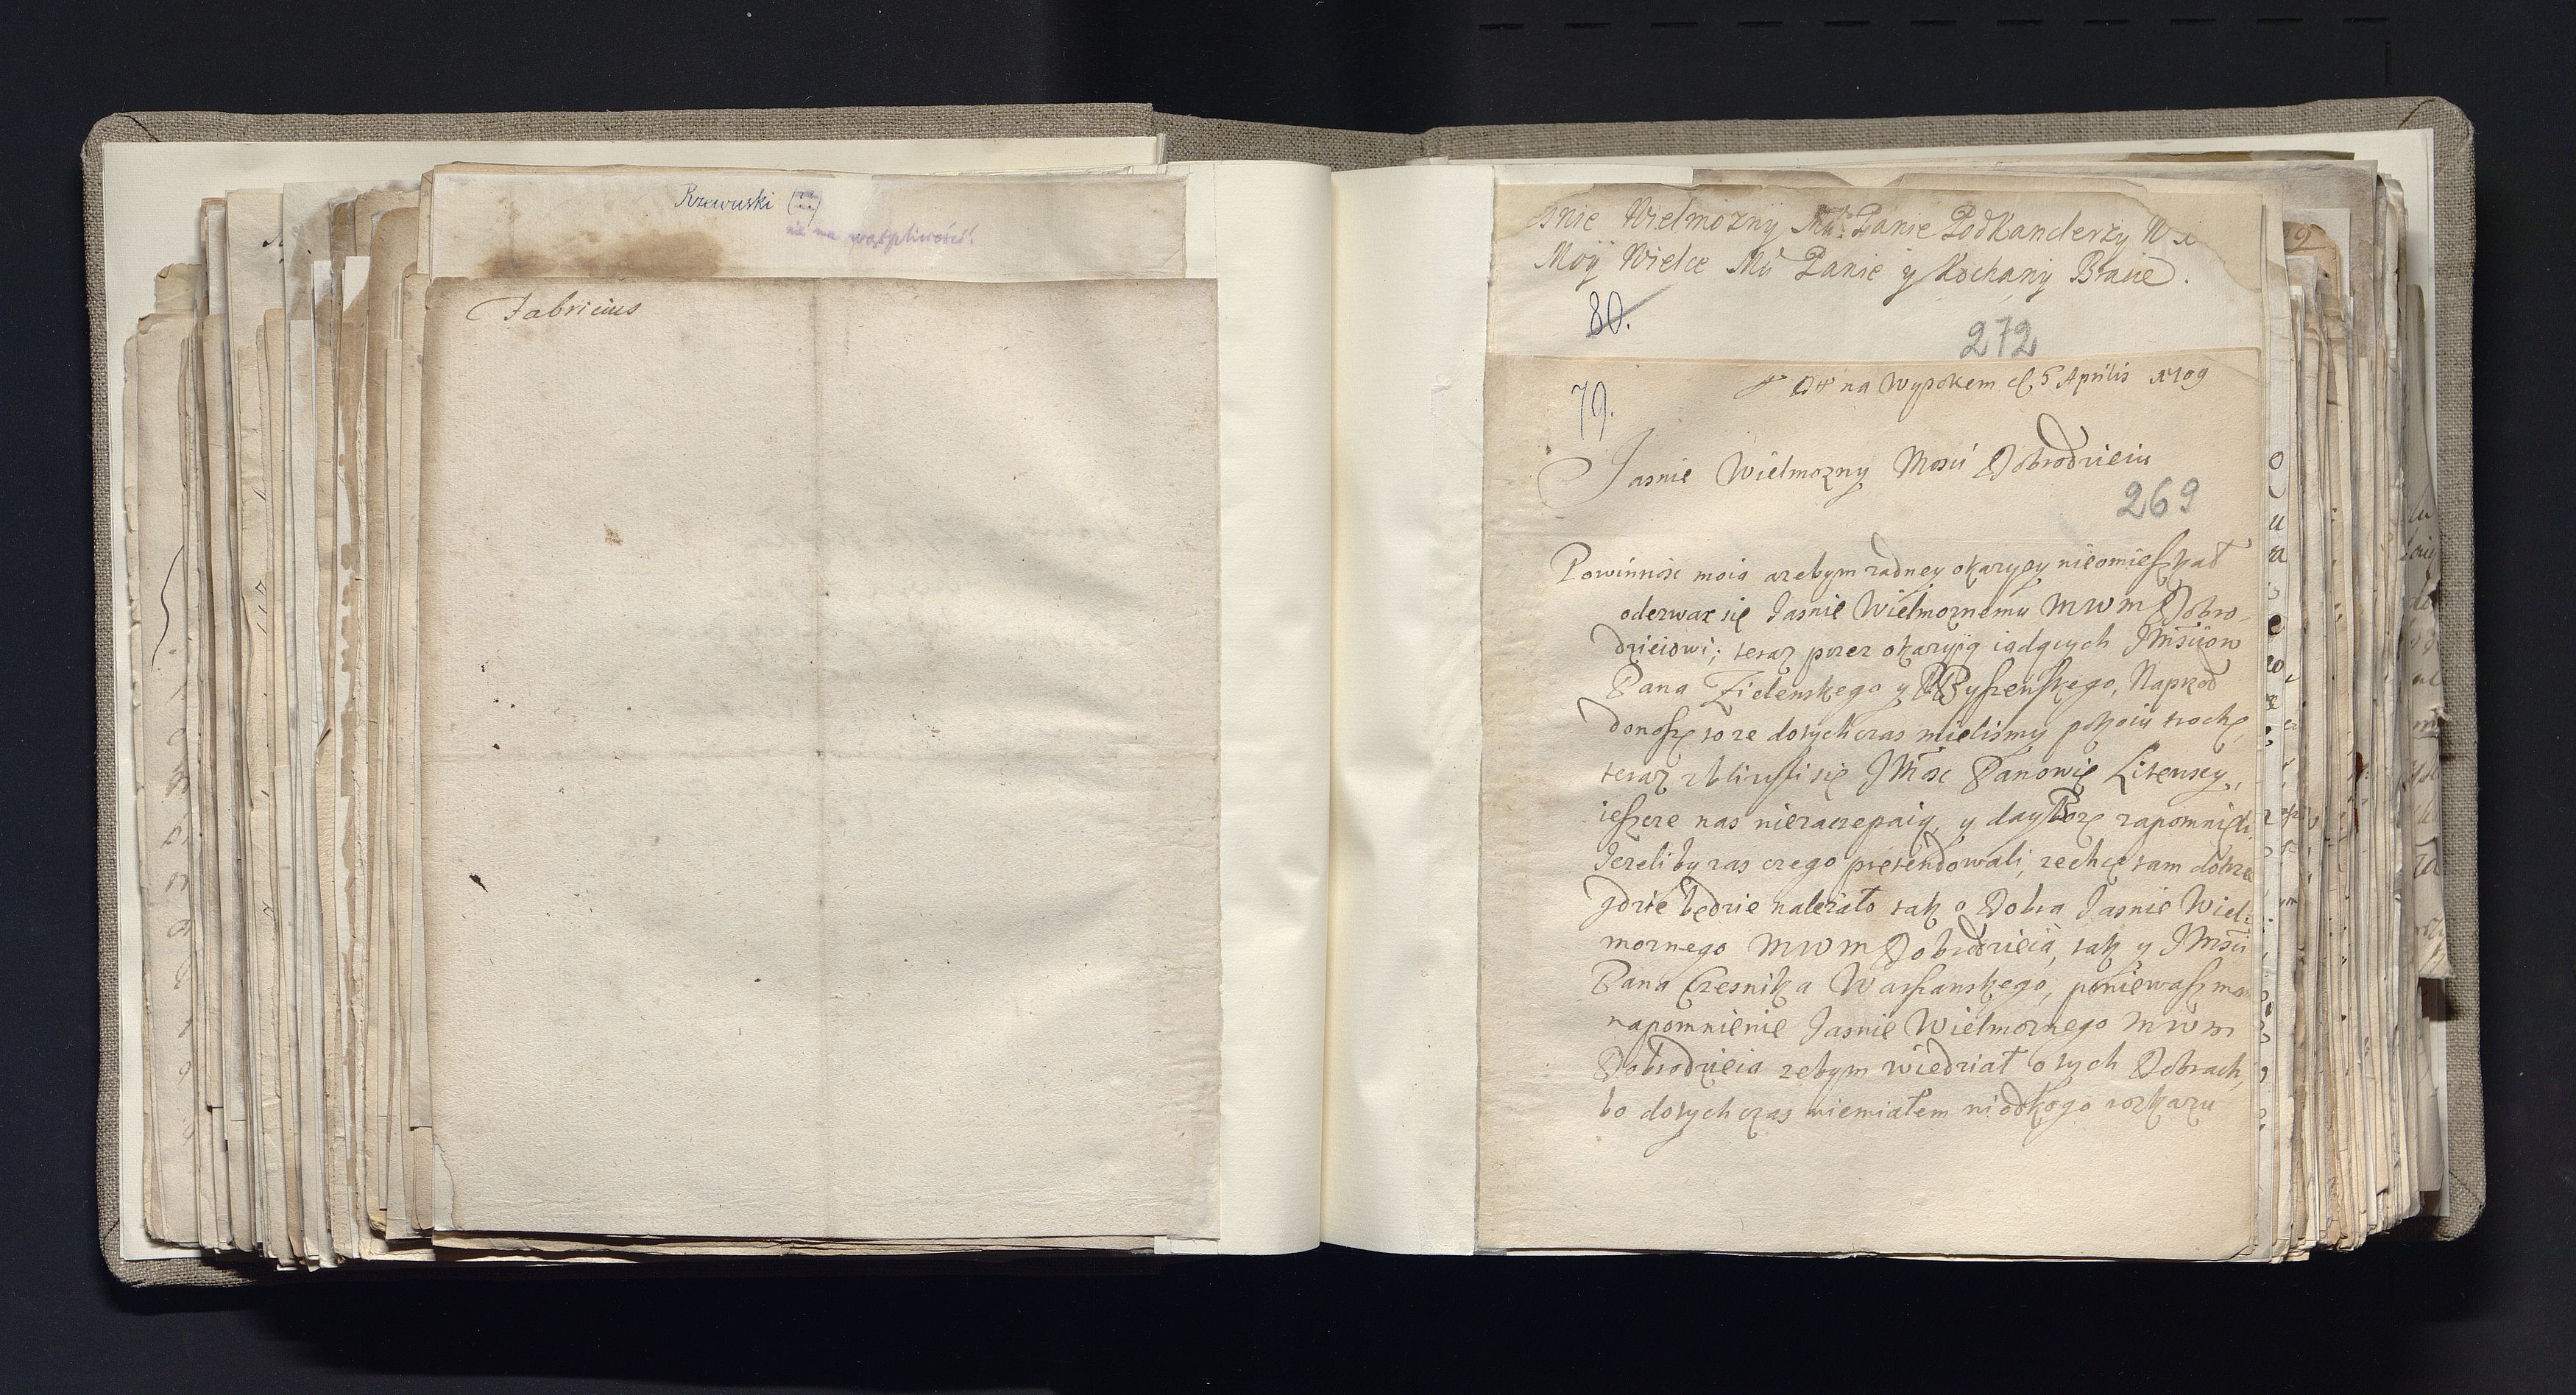 Rzewuski (?)
nie ma wątpliwości!
Fabricius
asnie Wielmozny Mći Panie Podkanclerzy W
Moy Wielce Mći Panie y Kochany Bracie.
80.
272
na Wysokem d 5 Aprilis 1709
79.
Jasnie Wielmozny Mosci Dobrodzieiu
269
Powinnosc moia azebym zadney okazyey nieomieszkał
oderwac się Jasnie Wielmoznemu MWM Dobro-
dzieiowi; teraz przez okazyią iadących JMsciow
Pana Zielenskego y Napkod
donoszę to ze dotychczas mielismy pokoiu trochę,
teraz zblizyli się JMsc Panowie Litewscy,
ieszcze nas niezaczepaią, y day Boze zapomnieli.
Jezeliby zas czego pretendowali, zechcę tam dobrze
gdzie będzie nalezało tak o Dobra Jasnie Wiel-
moznego MWM Dobrodzieia, tak y JMsci
Pana Czesnika Warszanskego, poniewasz mo
napomnienie Jasnie Wielmoznego MWM
Dobrodzieia zebym wiedział o tych Dobrach,
bo dotychczas niemiałem niodkogo rozkazu